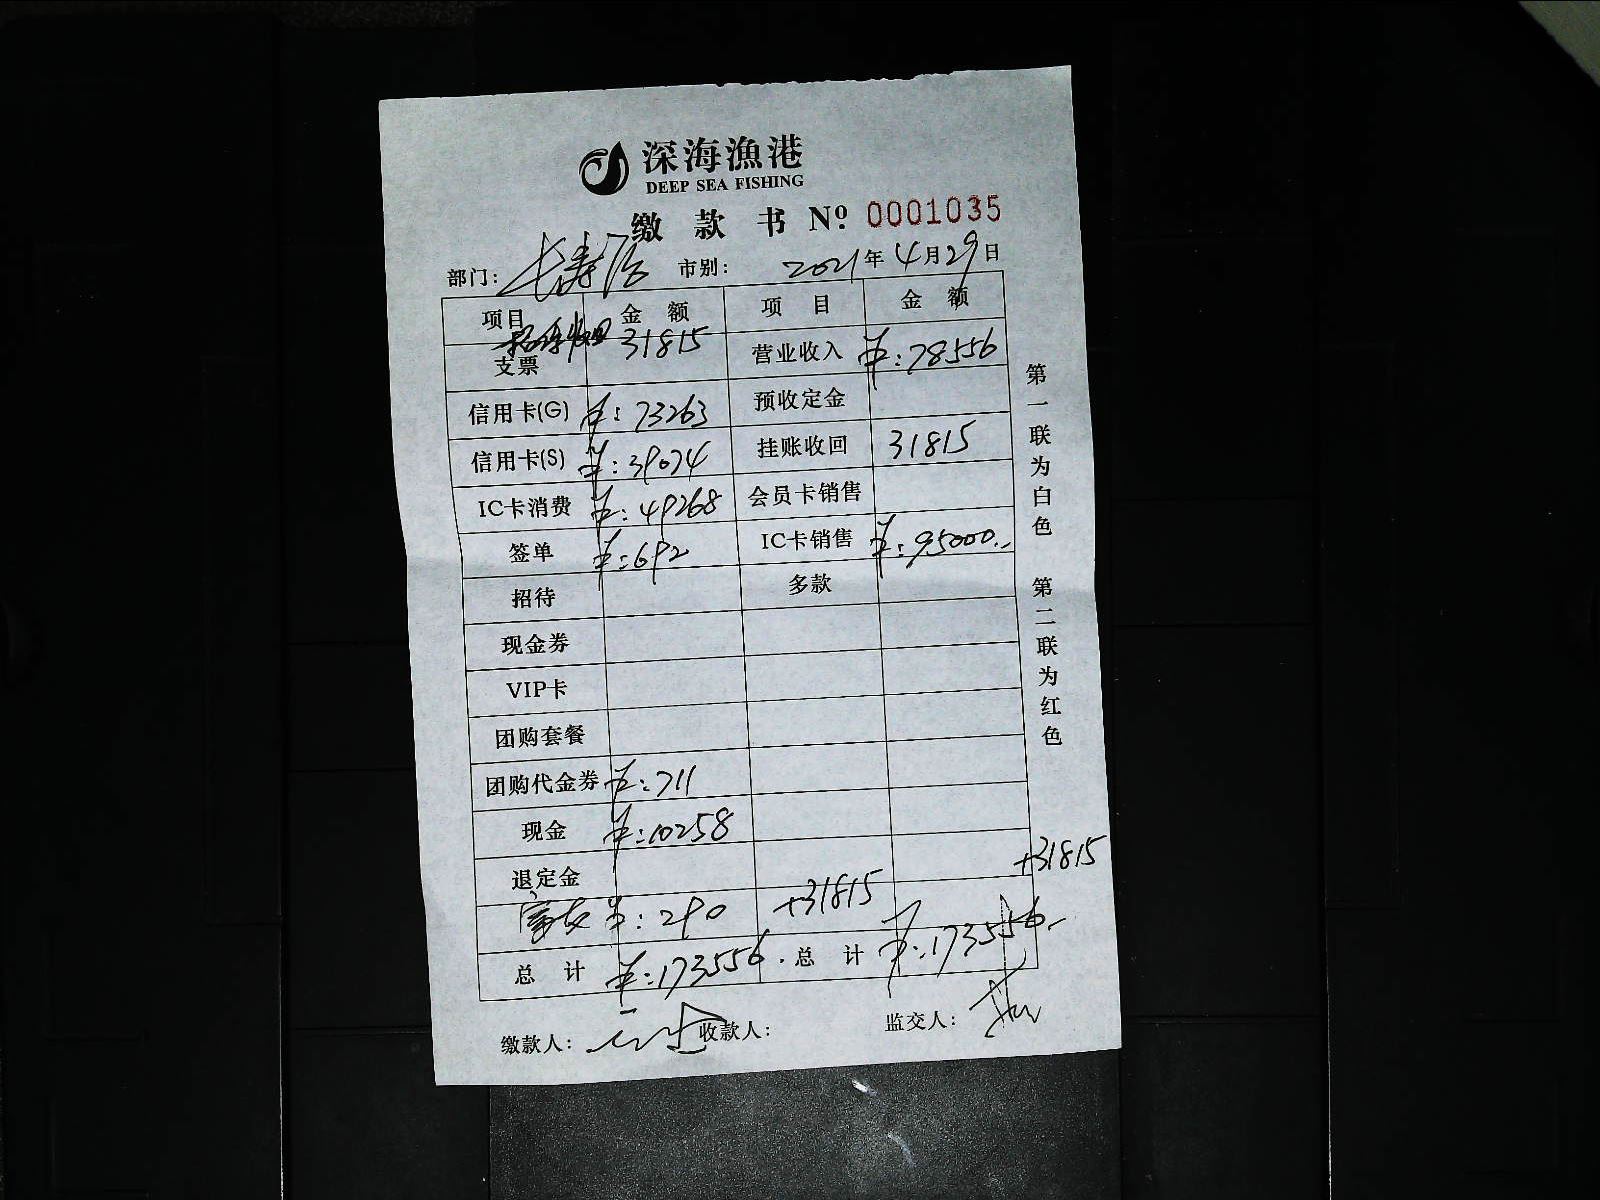 深海漁港
DEEP SEA FISHING
缴款书 Nº: 0001035
部门: 长寿店 市别: 2021年4月29日
项目 金额 项目 金额
支票 31815 营业收入 ¥:78556
信用卡(G) ¥:73263 预收定金
信用卡(S) ¥:39074 挂账收回 31815
IC卡消费 ¥:49268 会员卡销售
签单 ¥:692 IC卡销售 ¥:95000.-
招待 多款
现金券
VIP卡
团购套餐
团购代金券 ¥:711
现金 ¥:10258
退定金 +31815
¥:290 +31815
总计 ¥:173556. 总计 ¥:173556.-
缴款人: 收款人: 监交人:
第一联为白色 第二联为红色